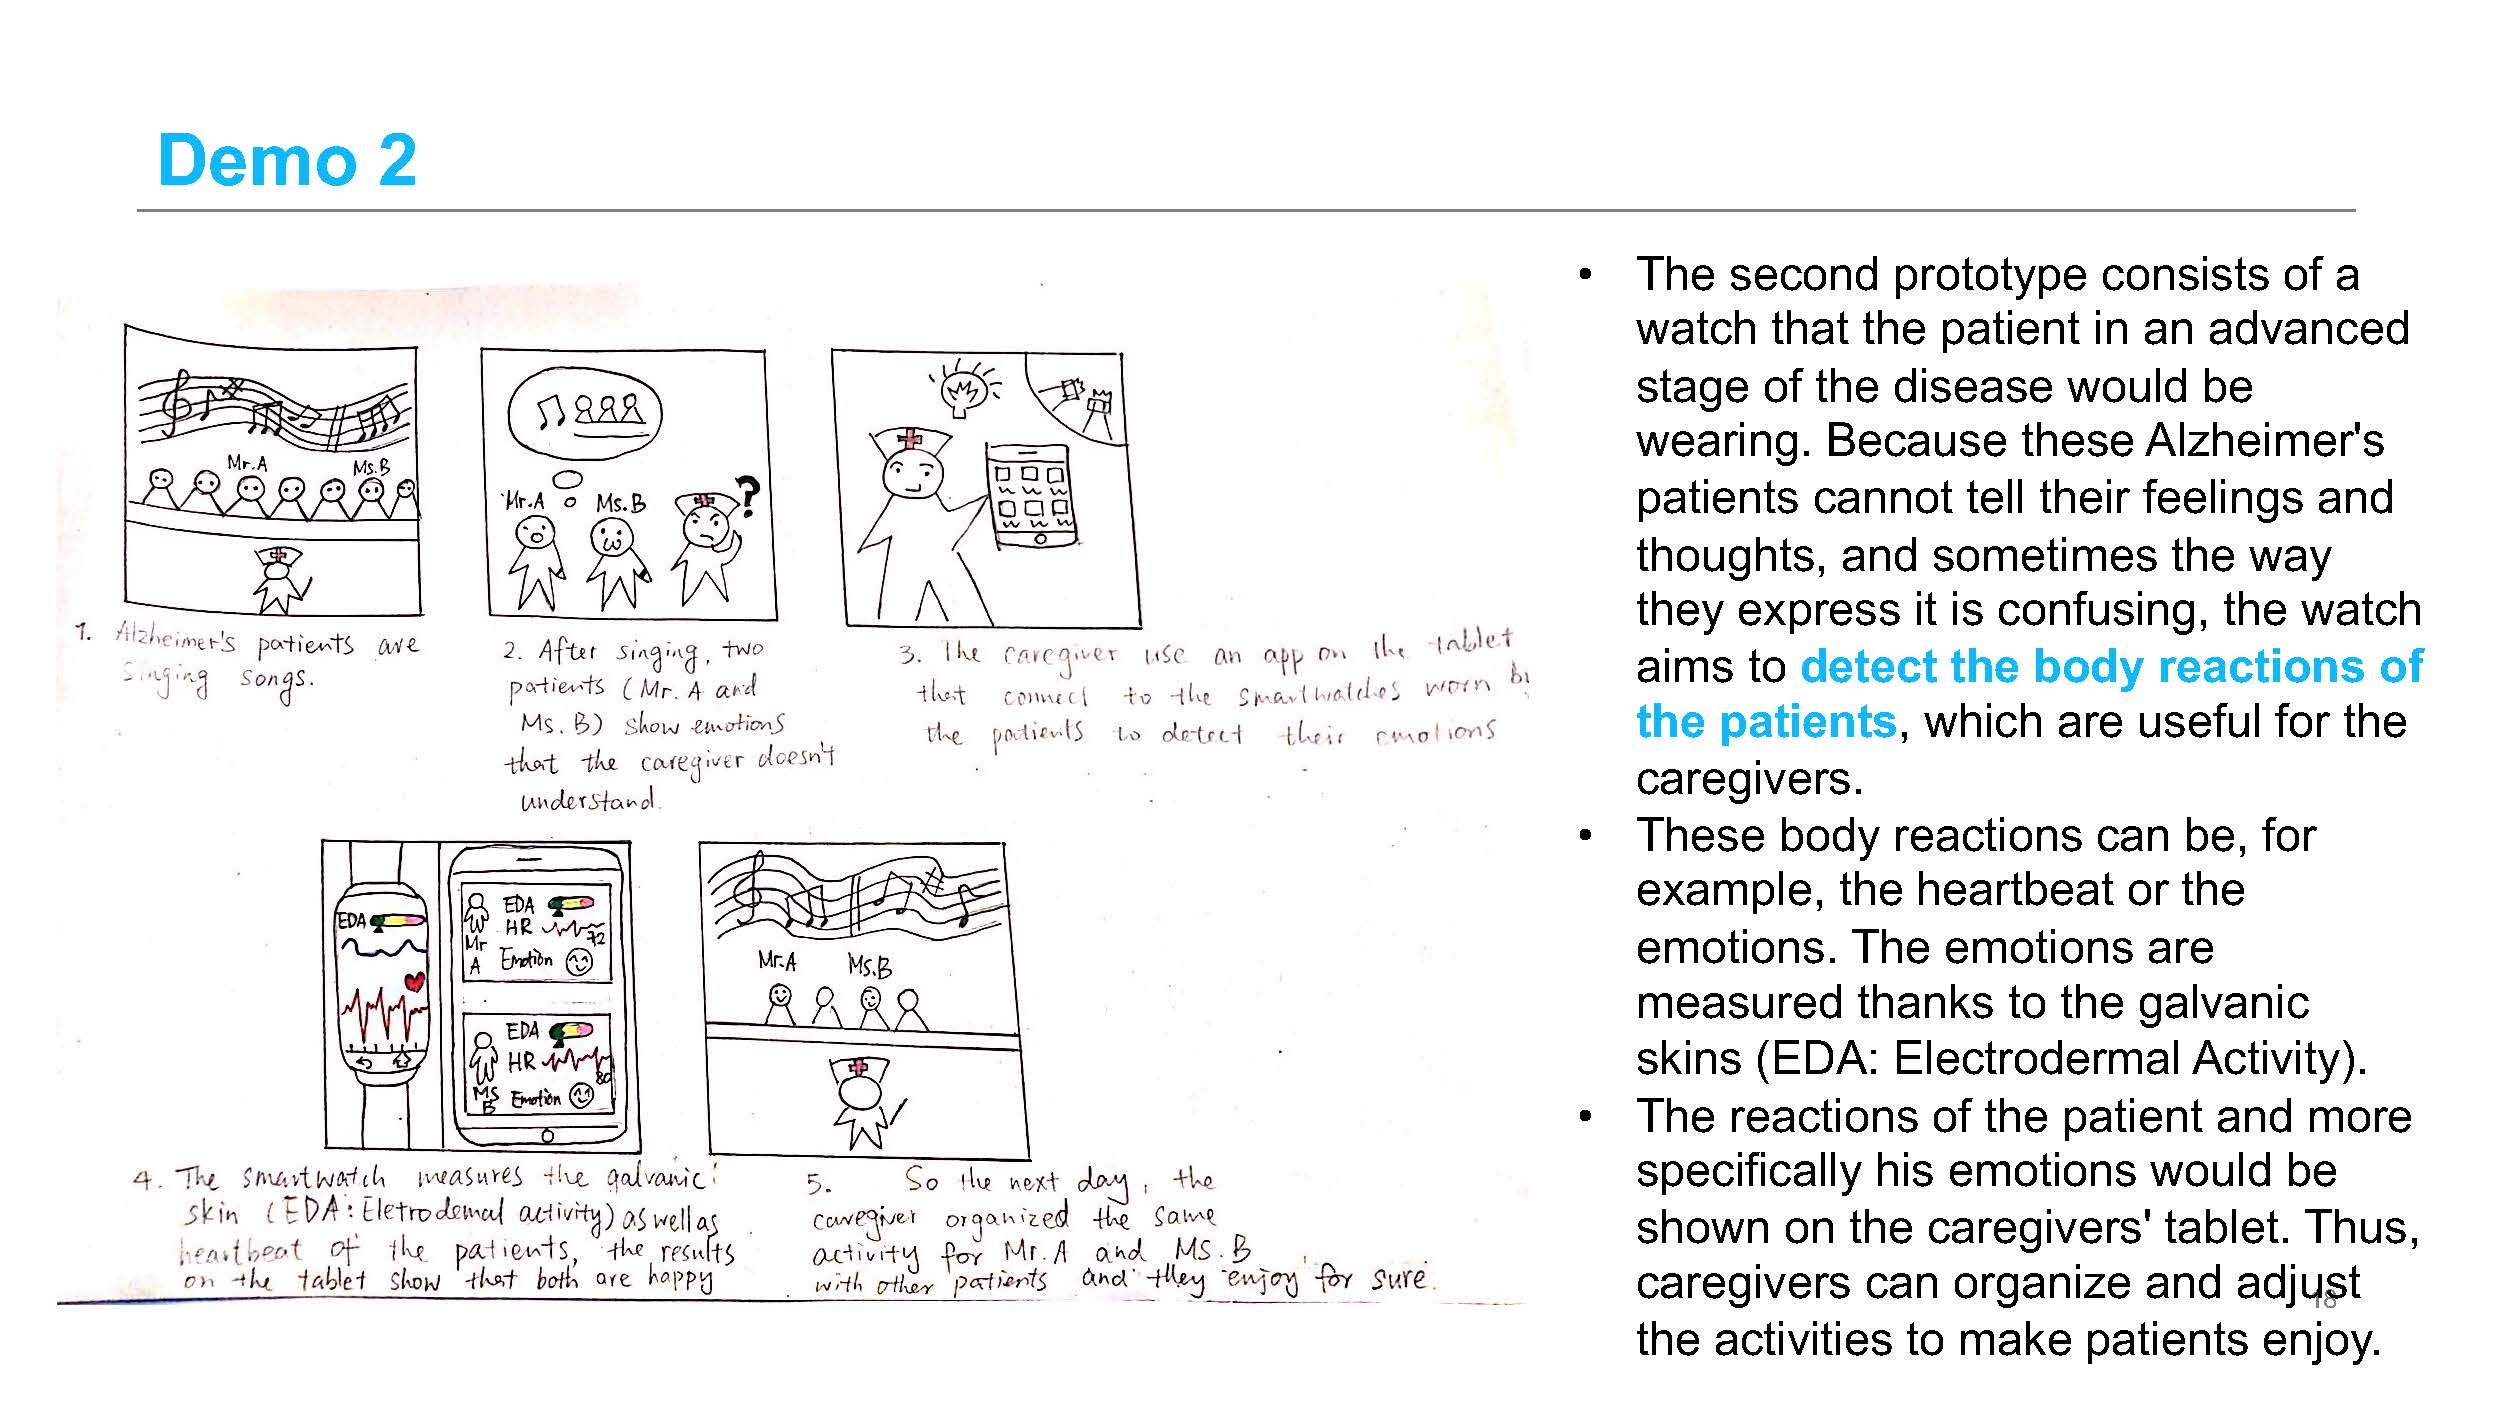 Demo 2
Mr.A
Ms.B
1. Alzheimer's patients are
singing songs.
Mr.A
Ms.B
?
2. After singing, two
patients (Mr. A and
Ms. B) show emotions
that the caregiver doesn't
understand.
3. The caregiver use an app on the tablet
that connect to the smartwatches worn by
the patients to detect their emotions
EDA
EDA
HR
72
Mr
A
Emotion
EDA
HR
80
MS
B
Emotion
4. The smartwatch measures the galvanic
skin (EDA: Eletrodemal activity) as well as
heartbeat of the patients, the results
on the tablet show that both are happy
Mr.A
Ms.B
5. So the next day, the
caregiver organized the same
activity for Mr. A and MS. B
with other patients and they enjoy for sure.
• The second prototype consists of a
watch that the patient in an advanced
stage of the disease would be
wearing. Because these Alzheimer's
patients cannot tell their feelings and
thoughts, and sometimes the way
they express it is confusing, the watch
aims to detect the body reactions of
the patients, which are useful for the
caregivers.
• These body reactions can be, for
example, the heartbeat or the
emotions. The emotions are
measured thanks to the galvanic
skins (EDA: Electrodermal Activity).
• The reactions of the patient and more
specifically his emotions would be
shown on the caregivers' tablet. Thus,
caregivers can organize and adjust
the activities to make patients enjoy.
18